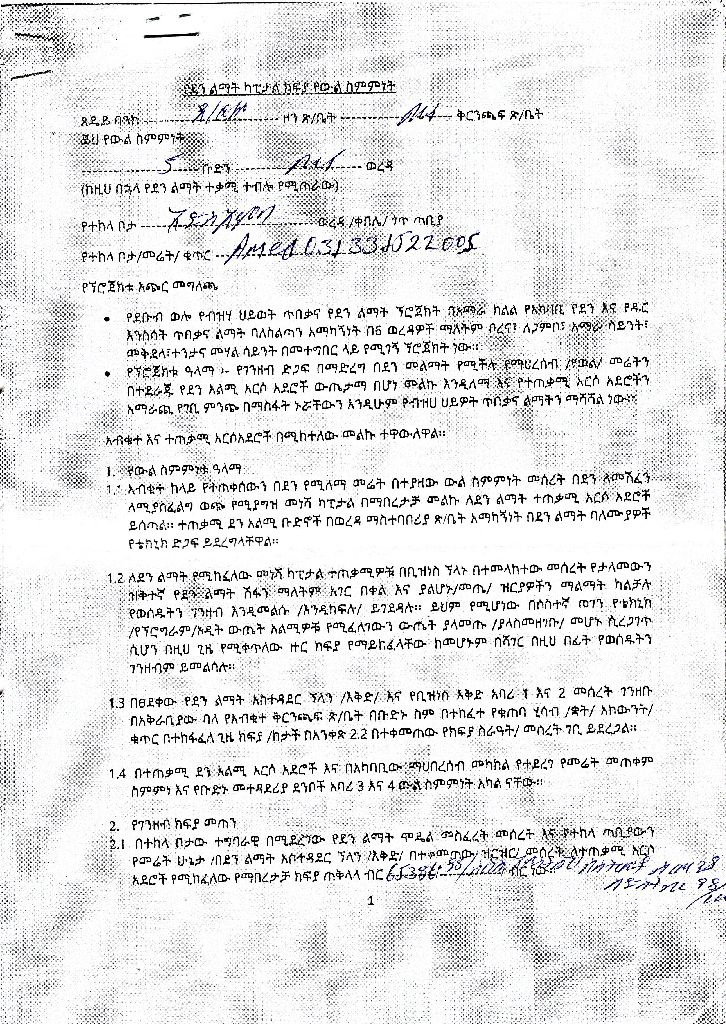 የደን ልማት ካፒታል ክፍያ የውል ስምምነት
ጸደይ ባንክ ዞን ጽ/ቤት ቅርንጫፍ ጽ/ቤት
ይህ የውል ስምምነት
5 ቡድን ወረዳ
(ከዚህ በኋላ የደን ልማት ተቃሚ ተብሎ የሚጠራው)
የተከላ ቦታ ወረዳ /ቀበሌ/ ጎጥ ጣቢያ
የተከላ ቦታ/መሬት/ ቁጥር
የፕሮጀክቱ አጭር መግለጫ
• የደቡብ ወሎ የብዝሃ ህይወት ጥበቃና የደን ልማት ፕሮጀክት በአማራ ክልል የአካባቢ የደን እና የዱር
እንስሳት ጥበቃና ልማት ባለስልጣን አማካኝነት በ6 ወረዳዎች ማለትም ቦረና፣ ለጋምቦ፣ አማራ ሳይንት፣
መቅደላ፣ተንታና መሃል ሳይንት በመተግበር ላይ የሚገኝ ፕሮጀክት ነው፡፡
• የፕሮጀክቱ ዓላማ ፡- የገንዘብ ድጋፍ በማድረግ በደን መልማት የሚችሉ የማህረሰብ /የወል/ መሬትን
በተደራጁ የደን አልሚ አርሶ አደሮች ውጤታማ በሆነ መልኩ እንዲለማ እና የተጠቃሚ አርሶ አደሮችን
አማራጪ የገቢ ምንጭ በማስፋት ኑሯቸውን እንዲሁም የብዝሀ ህይዎት ጥበቃና ልማትን ማሻሻል ነው፡፡
አብቁተ እና ተጠቃሚ አርሶአደሮች በሚከተለው መልኩ ተዋውለዋል፡፡
1. የውል ስምምነቱ ዓላማ
1.1 አብቁተ ከላይ የተጠቀሰውን በደን የሚለማ መሬት በተያዘው ውል ስምምነት መሰረት በደን ለመሸፈን
ለሚያስፈልግ ወጭ የሚያግዝ መነሻ ካፒታል በማበረታቻ መልኩ ለደን ልማት ተጠቃሚ አርሶ አደሮች
ይሰጣል፡፡ ተጠቃሚ ደን አልሚ ቡድኖች በወረዳ ማስተባበሪያ ጽ/ቤት አማካኝነት በደን ልማት ባለሙያዎች
የቴክኒክ ድጋፍ ይደረግላቸዋል፡፡
1.2 ለደን ልማት የሚከፈለው መነሻ ካፒታል ተጠቃሚዎቹ በቢዝነስ ፕላኑ በተመላከተው መሰረት የታለመውን
ዝቅተኛ የደን ልማት ሽፋን ማለትም አገር በቀል እና ያልሆኑ/መጤ/ ዝርያዎችን ማልማት ካልቻሉ
የወሰዱትን ገንዘብ እንዲመልሱ /እንዲከፍሉ/ ይገደዳሉ፡፡ ይህም የሚሆነው በሶስተኛ ወገን የቴክኒክ
/የፕሮግራም/ኦዲት ውጤት አልሚዎቹ የሚፈለገውን ውጤት ያላመጡ /ያላስመዘገቡ/ መሆኑ ሲረጋገጥ
ሲሆን በዚህ ጊዜ የሚቀጥለው ዙር ክፍያ የማይከፈላቸው ከመሆኑም በሻገር በዚህ በፊት የወሰዱትን
ገንዘብም ይመልሳሉ፡፡
1.3 በፀደቀው የደን ልማት አስተዳደር ፕላን /እቅድ/ እና የቢዝነስ እቅድ አባሪ 1 እና 2 መሰረት ገንዘቡ
በአቅራቢያው ባለ የአብቁተ ቅርንጫፍ ጽ/ቤት በቡድኑ ስም በተከፈተ የቁጠባ ሂሳብ /ቋት/ አካውንት/
ቁጥር በተከፋፈለ ጊዜ ክፍያ /ከታች በአንቀጽ 2.2 በተቀመጠው የክፍያ ስራዓት/ መሰረት ገቢ ይደረጋል፡፡
1.4 በተጠቃሚ ደን አልሚ አርሶ አደሮች እና በአካባቢው ማህበረሰብ መካከል የተደረገ የመሬት መጠቀም
ስምምነ እና የቡድኑ መተዳደሪያ ደንቦች አባሪ 3 እና 4 ውል ስምምነት አካል ናቸው፡፡
2. የገንዘብ ክፍያ መጠን
2.1 በተከላ ቦታው ተግባራዊ በሚደረገው የደን ልማት ሞዴል መስፈረት መሰረት እና የተከላ ጣቢያውን
የመሬት ሁኔታ /በደን ልማት አስተዳደር ፕላን /እቅድ/ በተቀመጠው/ ዝርዝር/ መሰረት ለተጠቃሚ አርሶ
አደሮች የሚከፈለው የማበረታቻ ክፍያ ጠቅላላ ብር ብር ነው
1